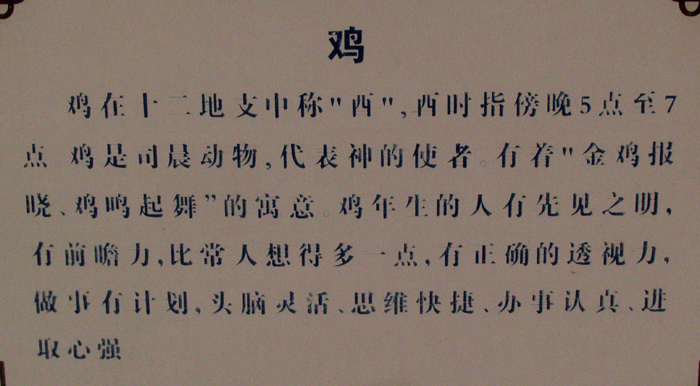 鸡
鸡在十二地支中称"西",西时指傍晚5点至7
点 鸡是司晨动物,代表神的使者。有着"金鸡报
晓、鸡鸣起舞"的寓意。鸡年生的人有先见之明,
有前瞻力,比常人想得多一点,有正确的透视力,
做事有计划,头脑灵活、思维快捷、办事认真、进
取心强